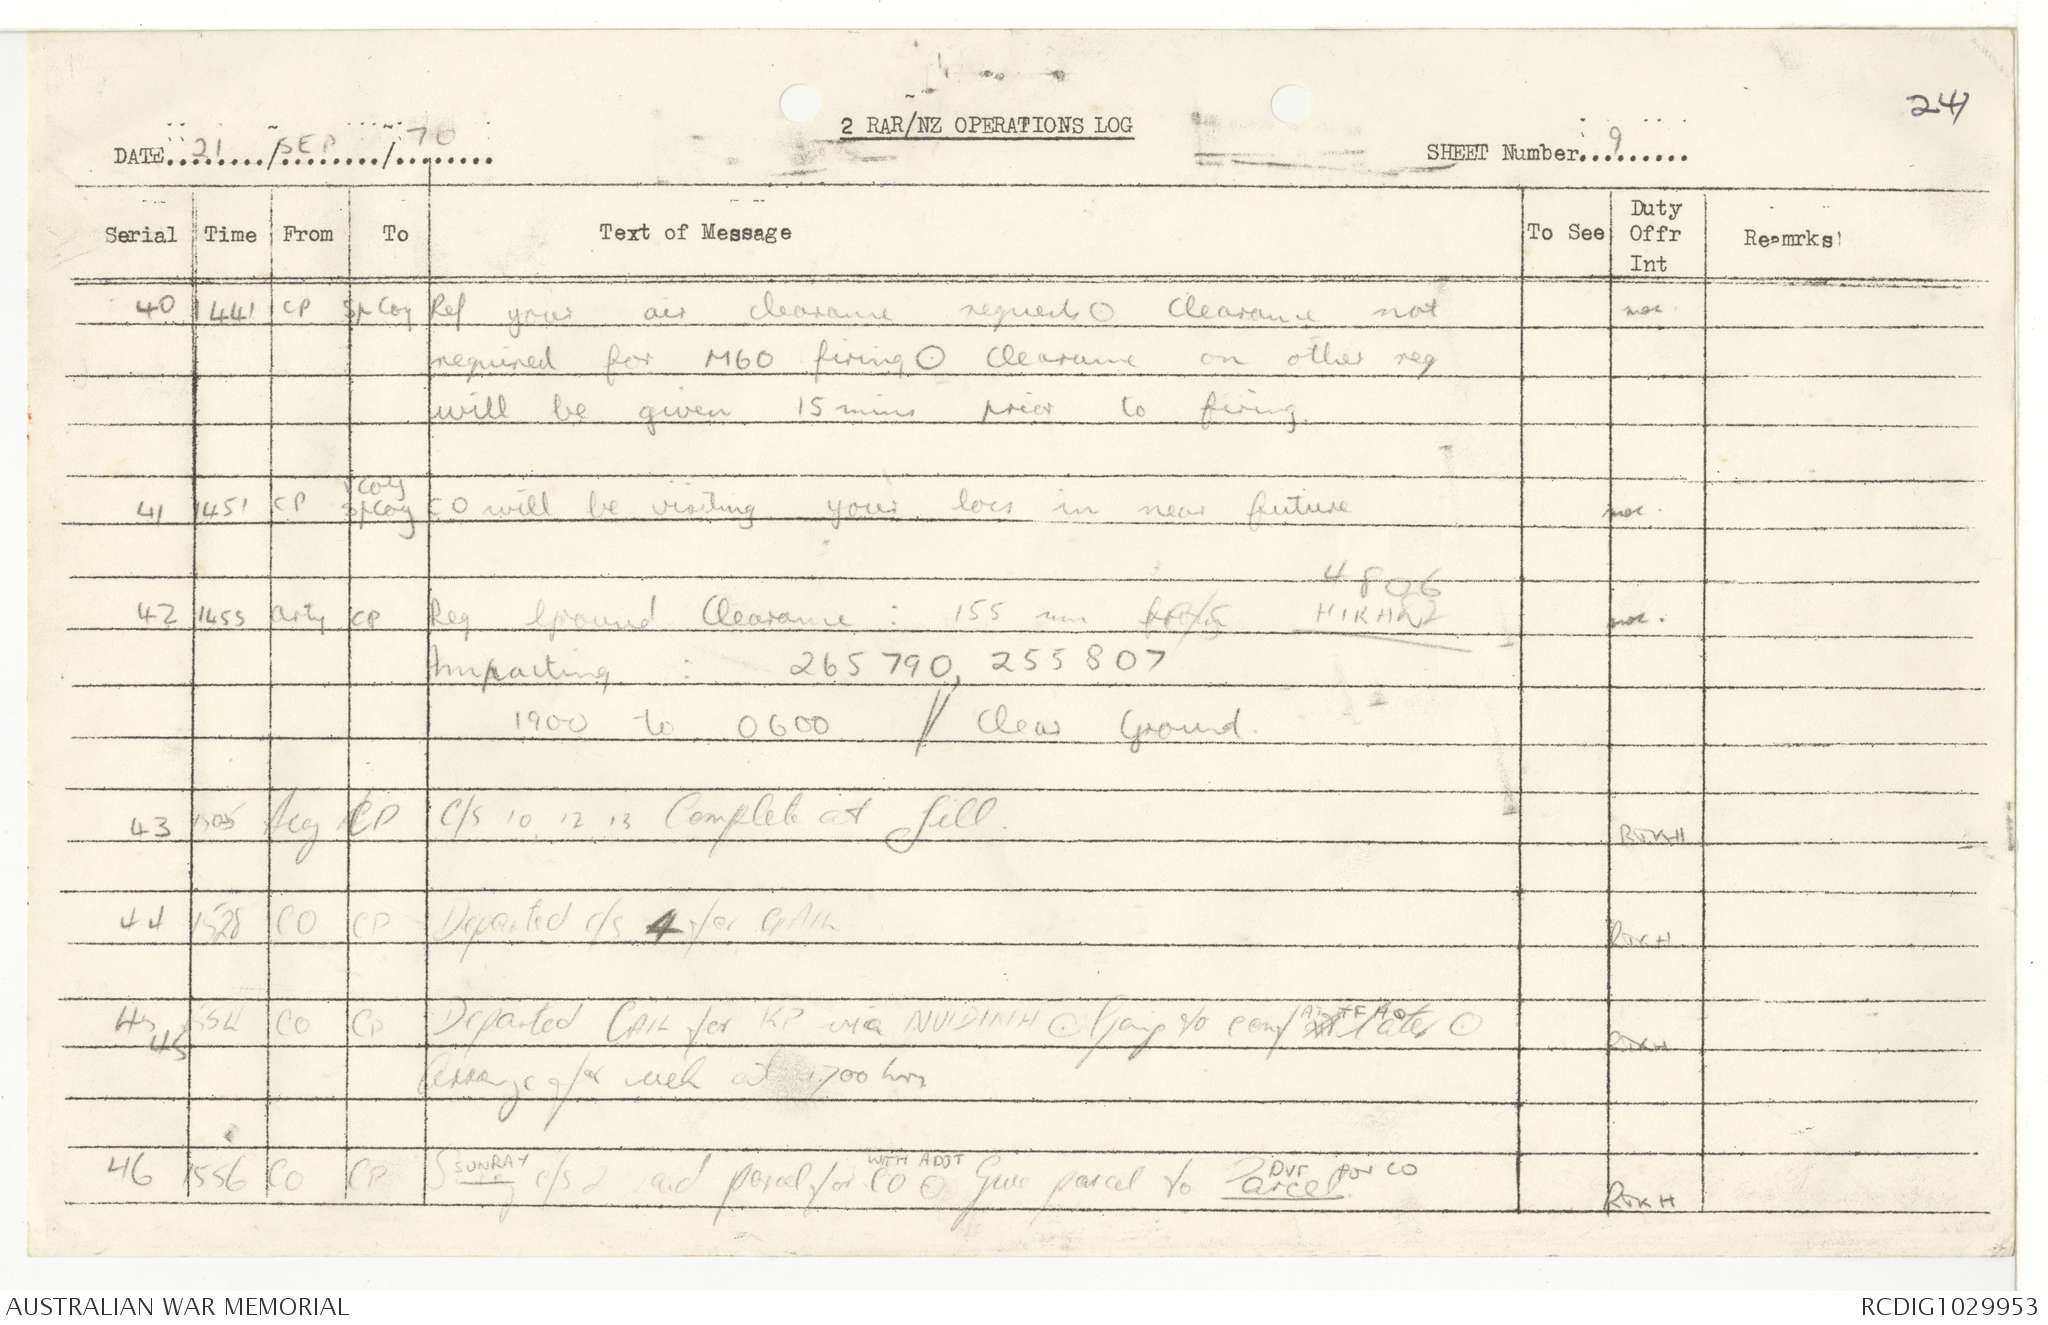 241
2 RAR/NZ OPERATIONS LOG
DATE 21 / SEP / 70
SHEET Number 9
Serial Time From To Text of Message To See Duty Offr Int Remrks
40 1441 CP SpCoy Ref your air clearance requests O Clearance not
required for M60 firing O Clearance on other req
will be given 15 mins prior to firing.
41 1451 CP VCoy SpCoy CO will be visiting your locs in near future
4806
42 1455 Arty CP Req Ground Clearance : 155 mm
Impacting : 265790, 255807
1900 to 0600 // Clear Ground.
43 1505 CP C/S 10 12 13 Complete at Jill. RJKH
44 1528 CO CP Departed c/s 4 for RJKH
45 CO CP Departed for KP via NUIDINH O to TFAO later O RJKH
45
Arrange for at 1700 hrs
46 1556 CO CP SUNRAY c/s 2 parcel for CO WITH ADJT O Give parcel to Parcel DVR for CO RJKH
AUSTRALIAN WAR MEMORIAL
RCDIG1029953